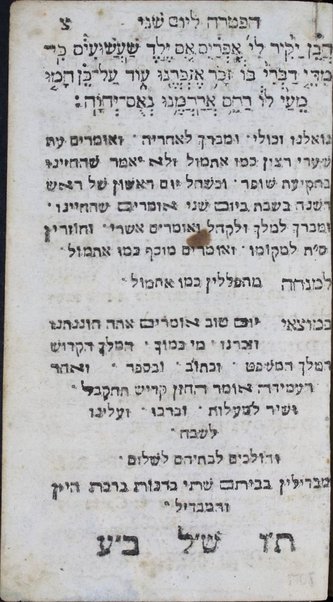 הפטרה ליום שני צ
הֲבֵן יַקִּיר לִי אֶפְרַיִם אִם יֶלֶד שַׁעֲשׁוּעִים כִּי
מִדֵּי דַבְּרִי בּוֹ זָכֹר אֶזְכְּרֶנּוּ עוֹד עַל כֵּן הָמוּ
מֵעַי לוֹ רַחֵם אֲרַחֲמֶנּוּ נְאֻם יְהוָה:
גואלנו וכולי · ומברך לאחריה · ואומרים עת
שערי רצון כמו אתמול ולא יאמר שהחיינו
בתקיעת שופר · וכשחל יום ראשון של ראש
השנה בשבת ביום שני אומרים שהחיינו ·
ומברך למלך ולקהל ואומרים אשרי · וחוזרין
ס״ת למקומו · ואומרים מוסף כמו אתמול ·
למנחה מתפללין כמו אתמול ·
במוצאי יום טוב אומרים אתה חוננתנו
זכרנו · מי כמוך · המלך הקדוש
המלך המשפט · וכתוב · ובספר · ואחר
העמידה אומר החזן קדיש תתקבל ·
ושיר למעלות · וברכו · ועלינו
לשבח ·
והולכים לבתיהם לשלום ·
מבדילין בביתם שתי ברכות ברכת היין
והמבדיל ·
ת׳ו׳ ש׳ל׳ ב׳ע׳